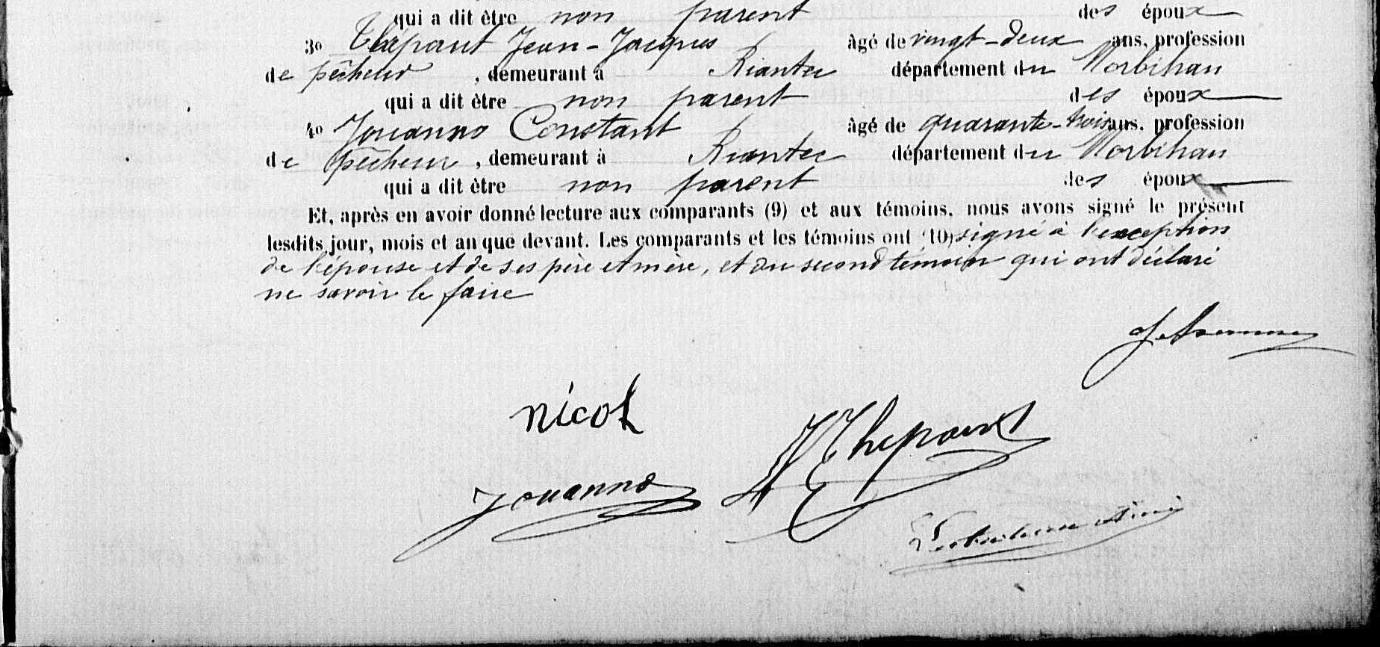 qui a dit être non parent des époux
3o Thépaut Jean-Jacques âgé de vingt-deux ans, profession
de pêcheur, demeurant à Riantec département du Morbihan
qui a dit être non parent des époux
4o Jouanno Constant âgé de quarante-trois ans, profession
de pêcheur, demeurant à Riantec département du Morbihan
qui a dit être non parent des époux
Et, après en avoir donné lecture aux comparants (9) et aux témoins, nous avons signé le présent
lesdits jour, mois et an que devant. Les comparants et les témoins ont (10) signé à l'exception
de l'épouse et de ses père et mère, et du second témoin qui ont déclaré
ne savoir le faire
nicol
JJ Thepaut
Jouanno